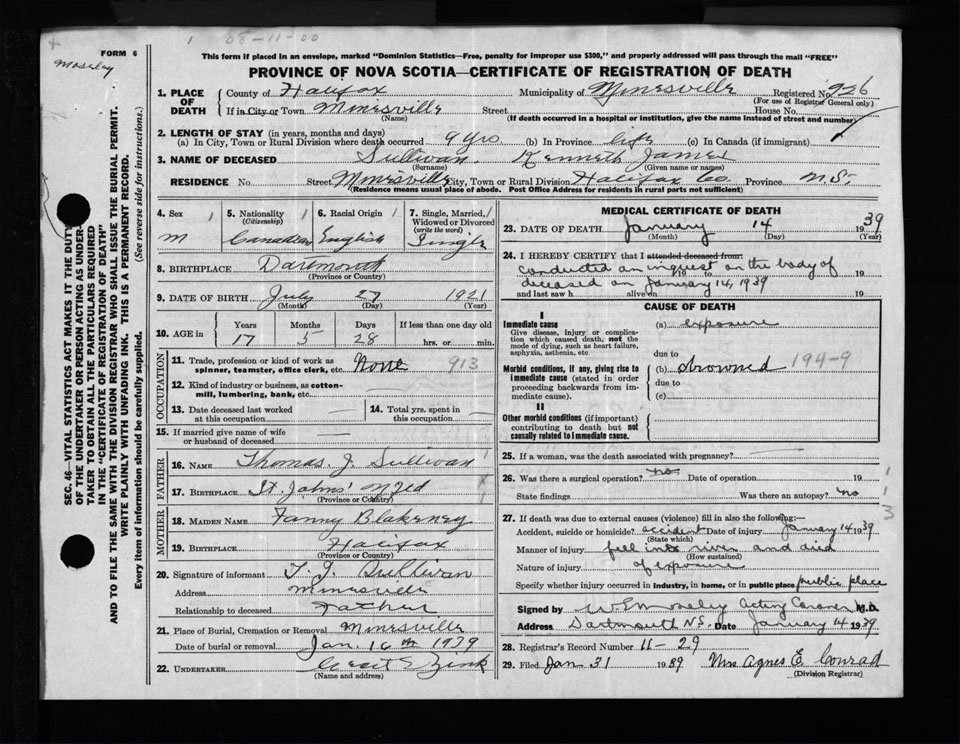 08-11-00
FORM 6
Moseley
This form if placed in an envelope, marked "Dominion Statistics—Free, penalty for improper use $300," and properly addressed will pass through the mail "FREE"
PROVINCE OF NOVA SCOTIA—CERTIFICATE OF REGISTRATION OF DEATH
SEC. 46—VITAL STATISTICS ACT MAKES IT THE DUTY
OF THE UNDERTAKER OR PERSON ACTING AS UNDER-
TAKER TO OBTAIN ALL THE PARTICULARS REQUIRED
IN THE "CERTIFICATE OF REGISTRATION OF DEATH"
AND TO FILE THE SAME WITH THE DIVISION REGISTRAR WHO SHALL ISSUE THE BURIAL PERMIT.
WRITE PLAINLY WITH UNFADING INK. THIS IS A PERMANENT RECORD.
Every item of information should be carefully supplied. (See reverse side for instructions.)
1. PLACE OF DEATH County of Halifax Municipality of Minesville Registered No. 926
(For use of Registrar General only)
If in City or Town Minesville Street House No.
(Name) (If death occurred in a hospital or institution, give the name instead of street and number)
2. LENGTH OF STAY (in years, months and days)
(a) In City, Town or Rural Division where death occurred 9 yrs. (b) In Province life (c) In Canada (if immigrant)
3. NAME OF DECEASED Sullivan. Kenneth James
(Surname) (Given name or names)
RESIDENCE No. Street Minesville City, Town or Rural Division Halifax Co. Province N.S.
(Residence means usual place of abode. Post Office Address for residents in rural parts not sufficient)
4. Sex 5. Nationality (Citizenship) 6. Racial Origin 7. Single, Married, Widowed or Divorced (write the word)
M Canadian English Single
8. BIRTHPLACE Dartmouth
(Province or Country)
9. DATE OF BIRTH July 27 1921
(Month) (Day) (Year)
10. AGE in Years Months Days If less than one day old
17 5 28 hrs. or min.
OCCUPATION
11. Trade, profession or kind of work as spinner, teamster, office clerk, etc. None 913
12. Kind of industry or business, as cotton-mill, lumbering, bank, etc.
13. Date deceased last worked at this occupation 14. Total yrs. spent in this occupation
15. If married give name of wife or husband of deceased
FATHER
16. NAME Thomas. J. Sullivan
17. BIRTHPLACE St. Johns' Nfld
(Province or Country)
MOTHER
18. MAIDEN NAME Fanny Blakeney
19. BIRTHPLACE Halifax
(Province or Country)
20. Signature of informant T. J. Sullivan
Address Minesville
Relationship to deceased Father
21. Place of Burial, Cremation or Removal Minesville
Date of burial or removal Jan. 16th 1939
22. UNDERTAKER Zink
(Name and address)
MEDICAL CERTIFICATE OF DEATH
23. DATE OF DEATH January 14 1939
(Month) (Day) (Year)
24. I HEREBY CERTIFY that I attended deceased from:
conducted an inquest on the body of
19 to 19
deceased on January 14, 1939
and last saw h alive on 19
CAUSE OF DEATH
I
Immediate cause (a) exposure
Give disease, injury or complication which caused death, not the mode of dying, such as heart failure, asphyxia, asthenia, etc
due to
Morbid conditions, if any, giving rise to immediate cause (stated in order proceeding backwards from immediate cause). (b) drowned 194-9
due to
(c)
II
Other morbid conditions (if important) contributing to death but not causally related to immediate cause.
25. If a woman, was the death associated with pregnancy?
26. Was there a surgical operation? no Date of operation 19
State findings Was there an autopsy? no
27. If death was due to external causes (violence) fill in also the following:—
Accident, suicide or homicide? accident Date of injury January 14 1939
(State which)
Manner of injury fell into river and died
(How sustained)
Nature of injury of exposure
Specify whether injury occurred in industry, in home, or in public place public place
Signed by W.E. Moseley Acting Coroner M.D.
Address Dartmouth N.S. Date January 14 1939
28. Registrar's Record Number 11-29
29. Filed Jan 31 1939 Mrs Agnes E. Conrad
(Division Registrar)